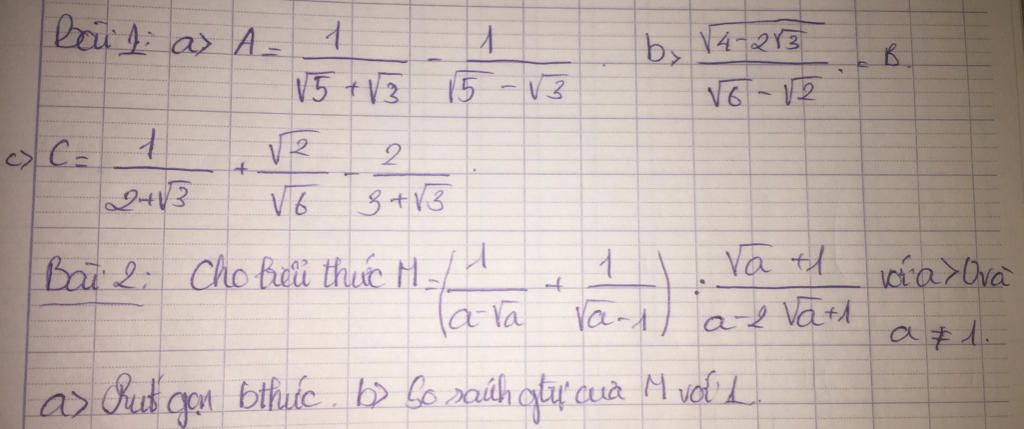 Bài 1: a> A = 1/(√5 + √3) - 1/(√5 - √3). b> √(4-2√3)/(√6 - √2) = B.
c> C = 1/(2+√3) + √2/√6 - 2/(3+√3).
Bài 2: Cho biểu thức M = (1/(a-√a) + 1/(√a-1)) : (√a+1)/(a-2√a+1) với a>0 và
a ≠ 1.
a> Rút gọn bthức. b> So sánh gtrị của M với 1.